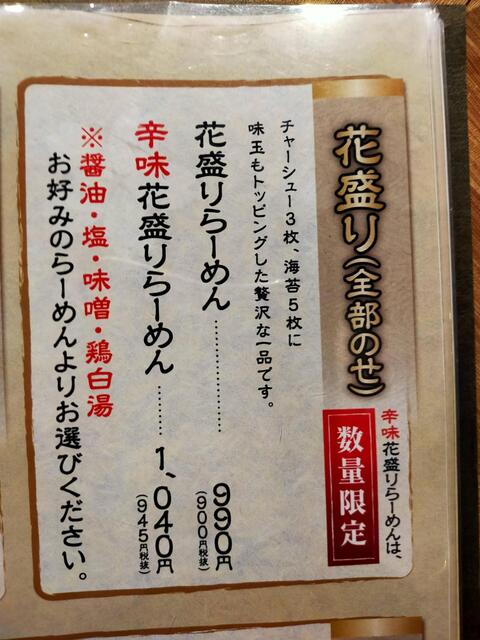 花盛り(全部のせ)
辛味花盛りらーめんは、
数量限定
チャーシュー3枚、海苔5枚に
味玉もトッピングした贅沢な一品です。
花盛りらーめん………………990円
(900円税抜)
辛味花盛りらーめん………1,040円
(945円税抜)
※醤油・塩・味噌・鶏白湯
お好みのらーめんよりお選びください。